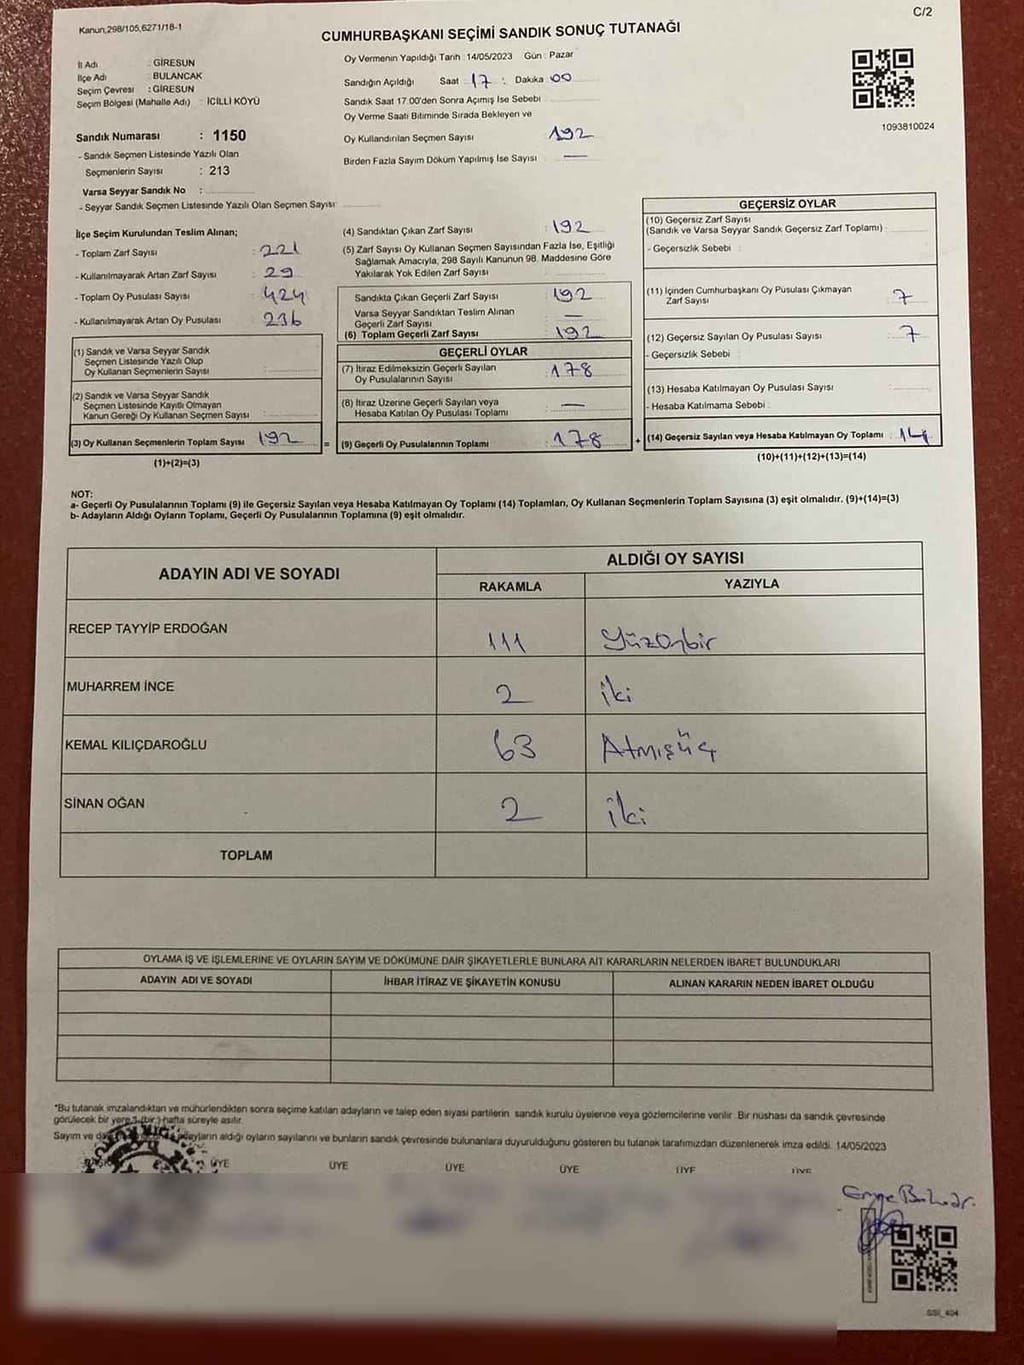 Kanun,298/105,6271/18-1
C/2
CUMHURBAŞKANI SEÇİMİ SANDIK SONUÇ TUTANAĞI
İl Adı : GİRESUN
İlçe Adı : BULANCAK
Seçim Çevresi : GİRESUN
Seçim Bölgesi (Mahalle Adı) : İCİLLİ KÖYÜ
Sandık Numarası : 1150
- Sandık Seçmen Listesinde Yazılı Olan
Seçmenlerin Sayısı : 213
Varsa Seyyar Sandık No :
- Seyyar Sandık Seçmen Listesinde Yazılı Olan Seçmen Sayısı:
Oy Vermenin Yapıldığı Tarih : 14/05/2023 Gün : Pazar
Sandığın Açıldığı Saat : 17 : Dakika : 00
Sandık Saat 17.00'den Sonra Açımış İse Sebebi :
Oy Verme Saati Bitiminde Sırada Bekleyen ve
Oy Kullandırılan Seçmen Sayısı : 192
Birden Fazla Sayım Döküm Yapılmış İse Sayısı : —
1093810024
İlçe Seçim Kurulundan Teslim Alınan;
- Toplam Zarf Sayısı : 221
- Kullanılmayarak Artan Zarf Sayısı : 29
- Toplam Oy Pusulası Sayısı : 424
- Kullanılmayarak Artan Oy Pusulası : 236
(1) Sandık ve Varsa Seyyar Sandık
Seçmen Listesinde Yazılı Olup
Oy Kullanan Seçmenlerin Sayısı :
(2) Sandık ve Varsa Seyyar Sandık
Seçmen Listesinde Kayıtlı Olmayan
Kanun Gereği Oy Kullanan Seçmen Sayısı :
(3) Oy Kullanan Seçmenlerin Toplam Sayısı : 192 =
(1)+(2)=(3)
(4) Sandıktan Çıkan Zarf Sayısı : 192
(5) Zarf Sayısı Oy Kullanan Seçmen Sayısından Fazla İse, Eşitliği
Sağlamak Amacıyla, 298 Sayılı Kanunun 98. Maddesine Göre
Yakılarak Yok Edilen Zarf Sayısı :
Sandıkta Çıkan Geçerli Zarf Sayısı : 192
Varsa Seyyar Sandıktan Teslim Alınan
Geçerli Zarf Sayısı : —
(6) Toplam Geçerli Zarf Sayısı : 192
GEÇERLİ OYLAR
(7) İtiraz Edilmeksizin Geçerli Sayılan
Oy Pusulalarının Sayısı : 178
(8) İtiraz Üzerine Geçerli Sayılan veya
Hesaba Katılan Oy Pusulası Toplamı : —
(9) Geçerli Oy Pusulalarının Toplamı : 178 +
GEÇERSİZ OYLAR
(10) Geçersiz Zarf Sayısı
(Sandık ve Varsa Seyyar Sandık Geçersiz Zarf Toplamı) :
- Geçersizlik Sebebi :
(11) İçinden Cumhurbaşkanı Oy Pusulası Çıkmayan
Zarf Sayısı : 7
(12) Geçersiz Sayılan Oy Pusulası Sayısı : 7
- Geçersizlik Sebebi :
(13) Hesaba Katılmayan Oy Pusulası Sayısı :
- Hesaba Katılmama Sebebi :
(14) Geçersiz Sayılan veya Hesaba Katılmayan Oy Toplamı : 14
(10)+(11)+(12)+(13)=(14)
NOT:
a- Geçerli Oy Pusulalarının Toplamı (9) ile Geçersiz Sayılan veya Hesaba Katılmayan Oy Toplamı (14) Toplamları, Oy Kullanan Seçmenlerin Toplam Sayısına (3) eşit olmalıdır. (9)+(14)=(3)
b- Adayların Aldığı Oyların Toplamı, Geçerli Oy Pusulalarının Toplamına (9) eşit olmalıdır.
ADAYIN ADI VE SOYADI
ALDIĞI OY SAYISI
RAKAMLA YAZIYLA
RECEP TAYYİP ERDOĞAN 111 Yüzonbir
MUHARREM İNCE 2 iki
KEMAL KILIÇDAROĞLU 63 Atmışüç
SİNAN OĞAN 2 iki
TOPLAM
OYLAMA İŞ VE İŞLEMLERİNE VE OYLARIN SAYIM VE DÖKÜMÜNE DAİR ŞİKAYETLERLE BUNLARA AİT KARARLARIN NELERDEN İBARET BULUNDUKLARI
ADAYIN ADI VE SOYADI İHBAR İTİRAZ VE ŞİKAYETİN KONUSU ALINAN KARARIN NEDEN İBARET OLDUĞU
*Bu tutanak imzalandıktan ve mühürlendikten sonra seçime katılan adayların ve talep eden siyasi partilerin sandık kurulu üyelerine veya gözlemcilerine verilir. Bir nüshası da sandık çevresinde
görülecek bir yere 1 (bir) hafta süreyle asılır.
Sayım ve adayların aldığı oyların sayılarını ve bunların sandık çevresinde bulunanlara duyurulduğunu gösteren bu tutanak tarafımızdan düzenlenerek imza edildi. 14/05/2023
ÜYE ÜYE ÜYE ÜYE ÜYE ÜYE
SSİ_404